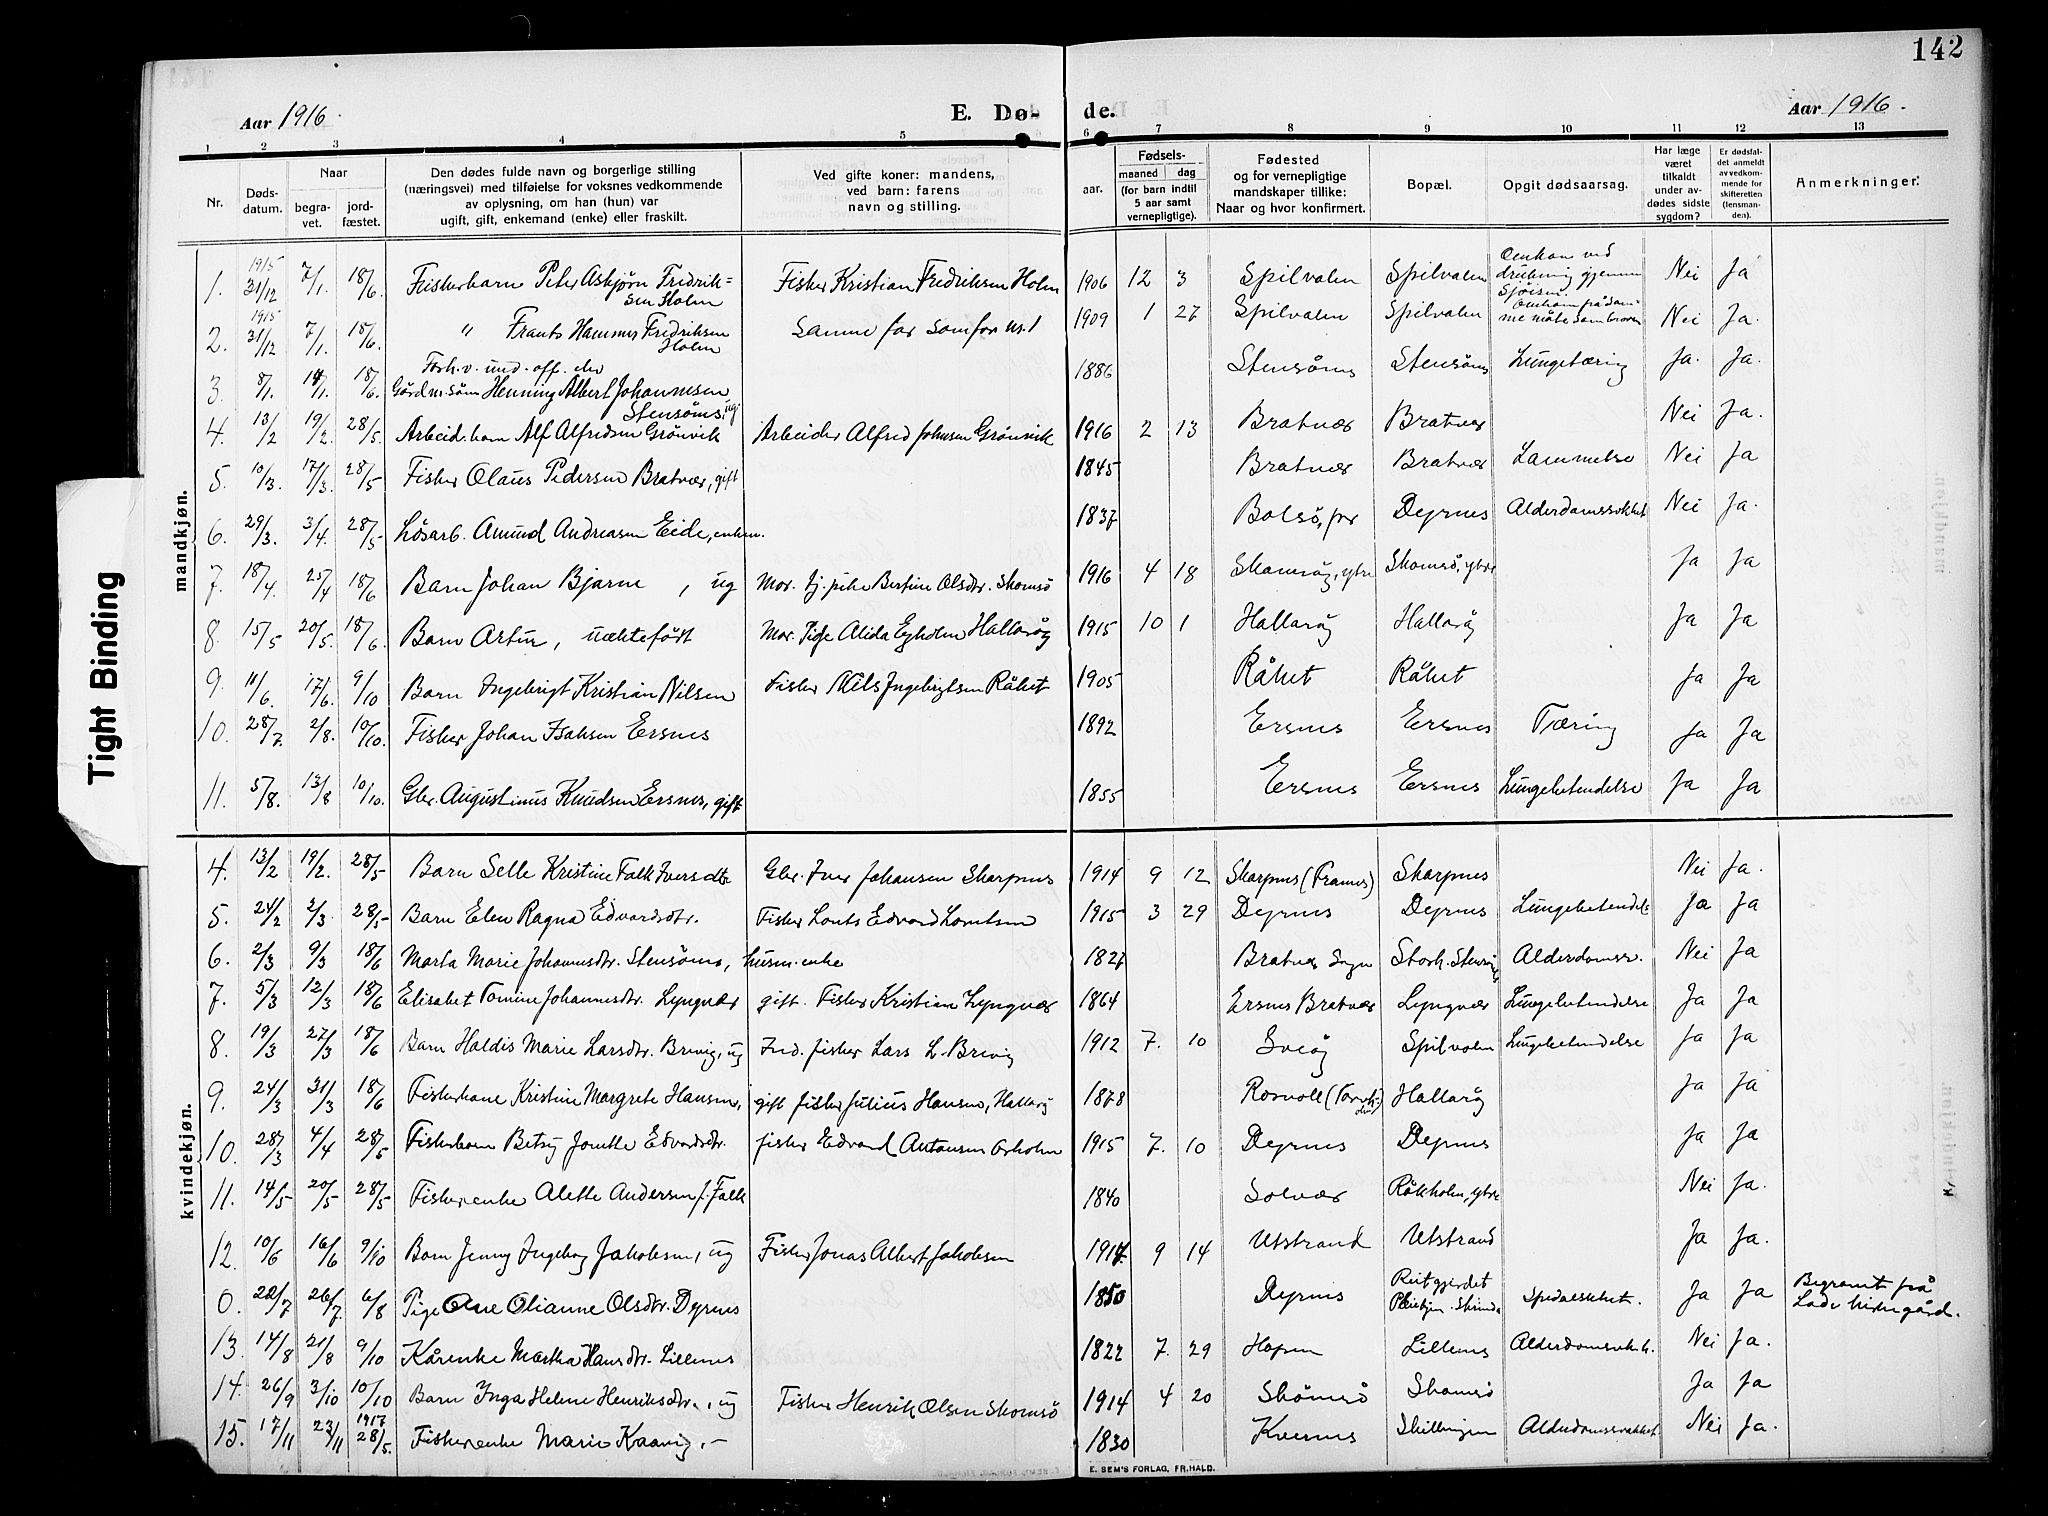 142
Aar 1916.
E. Dø- de.
Aar 1916.
1 2 3 4 5 6 6 7 8 9 10 11 12 13
Nr.
Døds-
datum.
Naar
begra-
vet.
jord-
fæstet.
Den dødes fulde navn og borgerlige stilling
(næringsvei) med tilføielse for voksnes vedkommende
av oplysning, om han (hun) var
ugift, gift, enkemand (enke) eller fraskilt.
Ved gifte koner: mandens,
ved barn: farens
navn og stilling.
aar.
Fødsels-
maaned dag
(for barn indtil
5 aar samt
vernepligtige).
Fødested
og for vernepligtige
mandskaper tillike:
Naar og hvor konfirmert.
Bopæl.
Opgit dødsaarsag.
Har læge
været
tilkaldt
under av-
dødes sidste
sygdom?
Er dødsfal-
det anmeldt
av vedkom-
mende for
skifteretten
(lensman-
den).
Anmerkninger.
mandkjøn.
1. 1915 31/12 7/1. 18/6. Fiskerbarn Peter Asbjørn Fredrik=
sen Holm Fisker Kristian Fredriksen Holm 1906 12 3 Spilvalen Spilvalen Omkom ved
drukning gjennem
sjøisen. Nei Ja
2. 1915 31/12 7/1. 18/6. " Frants Hammer Fredriksen
Holm Samme far som for nr. 1 1909 1 27 Spilvalen Spilvalen Omkom på sam-
me måte som broren Nei Ja.
3. 8/1. 14/1. 18/6. Forh. v. und. off. elev
Gårdm. søn Henning Albert Johannesen
Stensøms, ug. 1886 Stensøms Stensøms Lungetæring Ja. Ja.
4. 13/2 19/2. 28/5. Arbeid. barn Alf Alfredsen Grønvik Arbeider Alfred Johnsen Grønvik 1916 2 13 Bratvær Bratvær Nei Ja.
5. 10/3. 17/3. 28/5 Fisker Olaus Pedersen Bratvær, gift 1845 Bratvær Bratvær Lammelse Nei Ja
6. 29/3. 3/4. 28/5 Løsarb. Amund Andreasen Eide, enkem. 1837 Bolsø, pr Dyrnes Alderdomssvakhet Nei Ja.
7. 18/4. 25/4 18/6. Barn Johan Bjarne, ug Mor. tj. pike Bertine Olsdtr. Skomsø 1916 4 18 Skomsøy, ytre Skomsø, ytre Ja Ja
8. 15/5 20/5. 18/6. Barn Artur, uæktefødt Mor. Pige Alida Egholm Hallarøy 1915 10 1 Hallarøy Hallarøy Ja Ja
9. 11/6. 17/6. 9/10 Barn Ingebrigt Kristian Nilsen Fisker Nils Ingebrigtsen Råket 1905 Råket Råket Ja Ja
10. 28/7. 2/8. 10/10. Fisker Johan Isaksen Ersnes 1892 Ersnes Ersnes Tæring Ja Ja
11. 5/8. 13/8 10/10. Gbr. Augustinus Knudsen Ersnes, gift 1855 Ersnes Ersnes Lungebetendelse Ja Ja
kvindekjøn.
4. 13/2 19/2. 28/5 Barn Selle Kristine Falk Iversdtr Gbr. Iver Johansen Skarpnes 1914 9 12 Skarpnes (Framnes) Skarpnes Nei Ja.
5. 24/2 2/3 28/5 Barn Elen Ragna Edvardsdtr. Fisker Edvard Lorntsen 1915 3 29 Dyrnes Dyrnes Lungebetendels Ja Ja
6. 2/3 9/3 18/6 Marta Marie Johannesdtr. Stensøms, husm. enke 1827 Bratvær Sogn Alderdomssv. Nei Ja
7. 5/3 12/3 18/6 Elisabet Tomine Johannesdtr. Lyngvær gift. Fisker Kristian Lyngvær 1864 Ersnes Bratvær Lyngvær Lungebetendelse Ja Ja
8. 19/3 27/3 18/6 Barn Haldis Marie Larsdtr. Brevig, ug Ind. fisker Lars L. Brevig 1912 7. 10 Spilvolen Lungebetendelse Ja Ja
9. 24/3 31/3 18/6 Fiskerkone Kristine Margrete Hansen, gift fisker Julius Hansen, Hallarøy 1878 Rosvoll Hallarøy Ja Ja
10. 28/3 4/4 28/5 Fiskerbarn Betsy Edvardsdtr. fisker Edvard Antonsen Orholm 1915 7. 10 Dyrnes Dyrnes Ja Ja
11. 14/5 20/5 28/5 Fiskerenke Alette Andersen f. Falk 1840 Solvær Røkholm, ytre Nei Ja.
12. 10/6 16/6 9/10 Barn Jenny Ingeborg Jakobsen, ug Fisker Jonas Albert Jakobsen 1914 9 14 Utstrand Utstrand Ja Ja.
0. 22/7 26/7. 6/8 Pige Ane Olianne Olsdtr. Dyrnes 1850 Dyrnes Reitgjerdet
Pleiehjem. Strinda Spedalskhet. Ja Ja Begravet på
Lade kirkegård.
13. 14/8 21/8 9/10 Kårenke Martha Hansdtr. Lillenes 1822 7. 29 Hopen Lillenes Alderdomssvakh. Nei Ja.
14. 26/9 3/10 10/10 Barn Inga Helene Henriksdtr., ug Fisker Henrik Olsen Skomsø 1914 4 20 Skomsø Skomsø Ja Ja
15. 17/11 23/11 1917 28/5. Fiskerenke Marie Kaavig. – 1830 Kvernes Skillingen Alderdomssvakhet. Nei Ja.
E. SEM'S FORLAG, FR.HALD.
Tight Binding